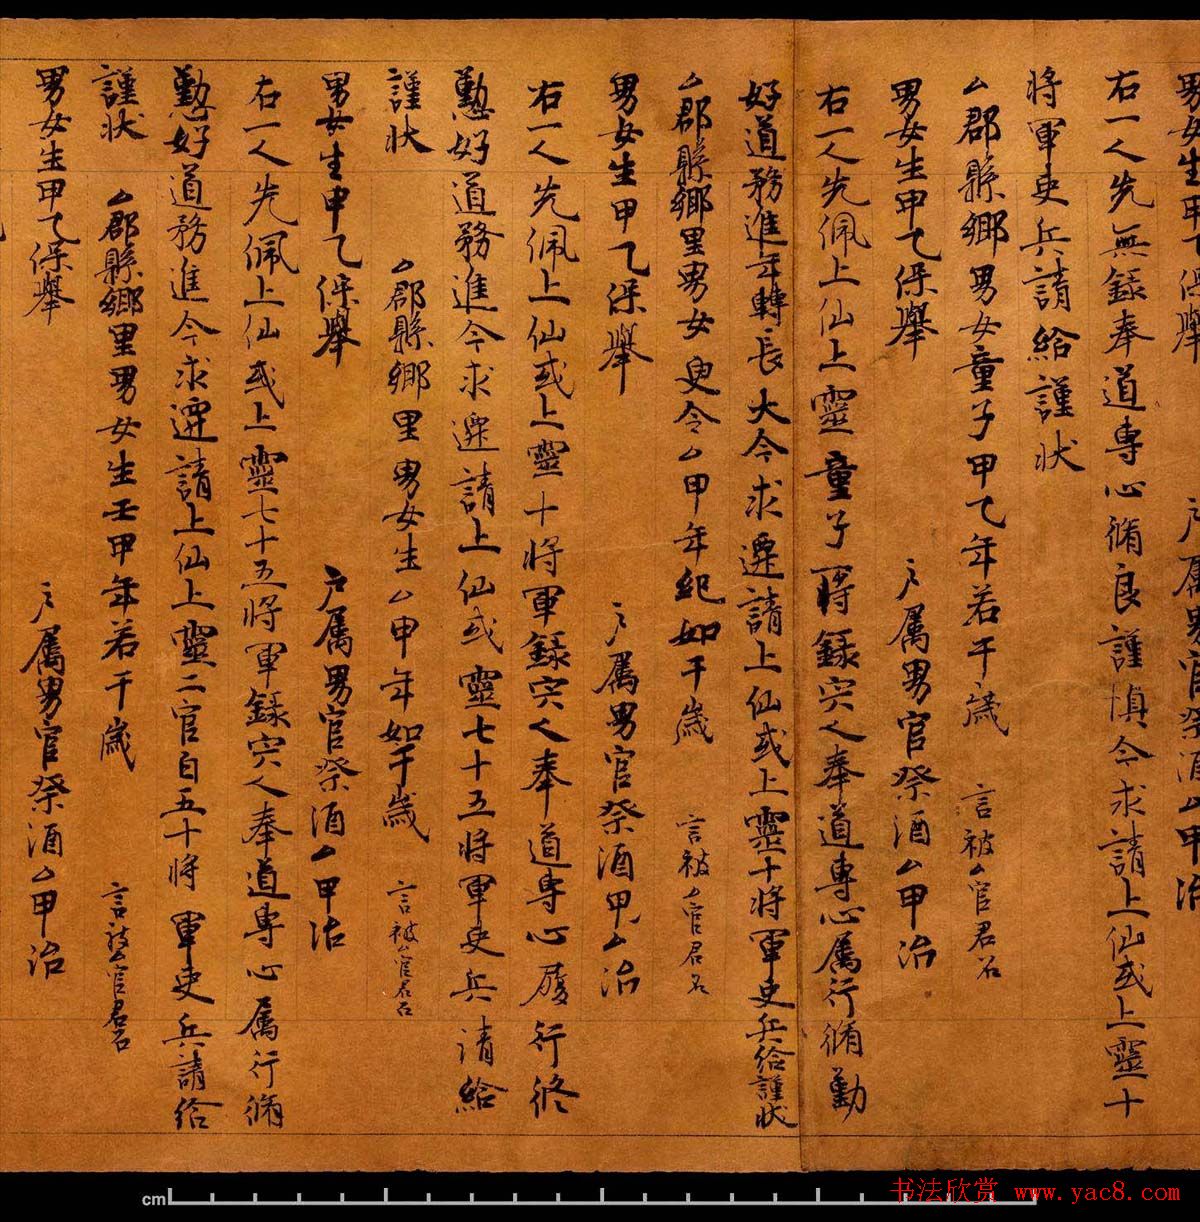 男女生甲乙保舉 戶屬男官祭酒厶甲治
右一人先無籙奉道專心脩良謹慎今求請上仙或上靈十
將軍吏兵請給謹狀
厶郡縣鄉男女童子甲乙年若干歲 言被厶官君召
男女生甲乙保舉 戶屬男官祭酒厶甲治
右一人先佩上仙上靈童子一將籙宍人奉道專心厲行脩勤
好道務進年轉長大今求遷請上仙或上靈十將軍吏兵給謹狀
厶郡縣鄉里男女叟令厶甲年紀如干歲 言被厶官君召
男女生甲乙保舉 戶屬男官祭酒甲厶治
右一人先佩上仙或上靈十將軍籙宍人奉道專心履行脩
懃好道務進今求遷請上仙或靈七十五將軍吏兵請給
謹狀 厶郡縣鄉里男女生厶甲年如干歲 言被厶官君召
男女生甲乙保舉 戶屬男官祭酒厶甲治
右一人先佩上仙或上靈七十五將軍籙宍人奉道專心厲行脩
懃好道務進今求遷請上仙上靈二官百五十將軍吏兵請給
謹狀 厶郡縣鄉里男女生壬甲年若干歲 言被厶官君召
男女生甲乙保舉 戶屬男官祭酒厶甲治
cm
书法欣赏 www.yac8.com